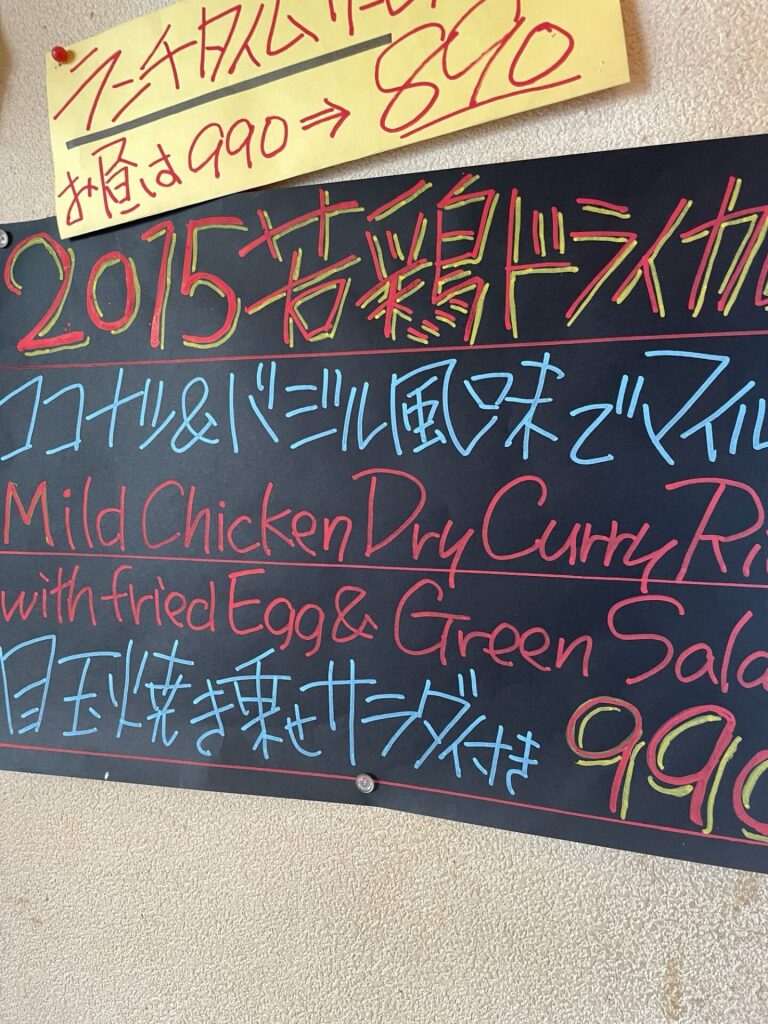 ランチタイム
お昼は990⇒890
2015若鶏ドライカ
ココナツ&バジル風味でマイル
Mild Chicken Dry Curry Ri
with fried Egg & Green Sala
目玉焼き乗せサラダイ付き 990